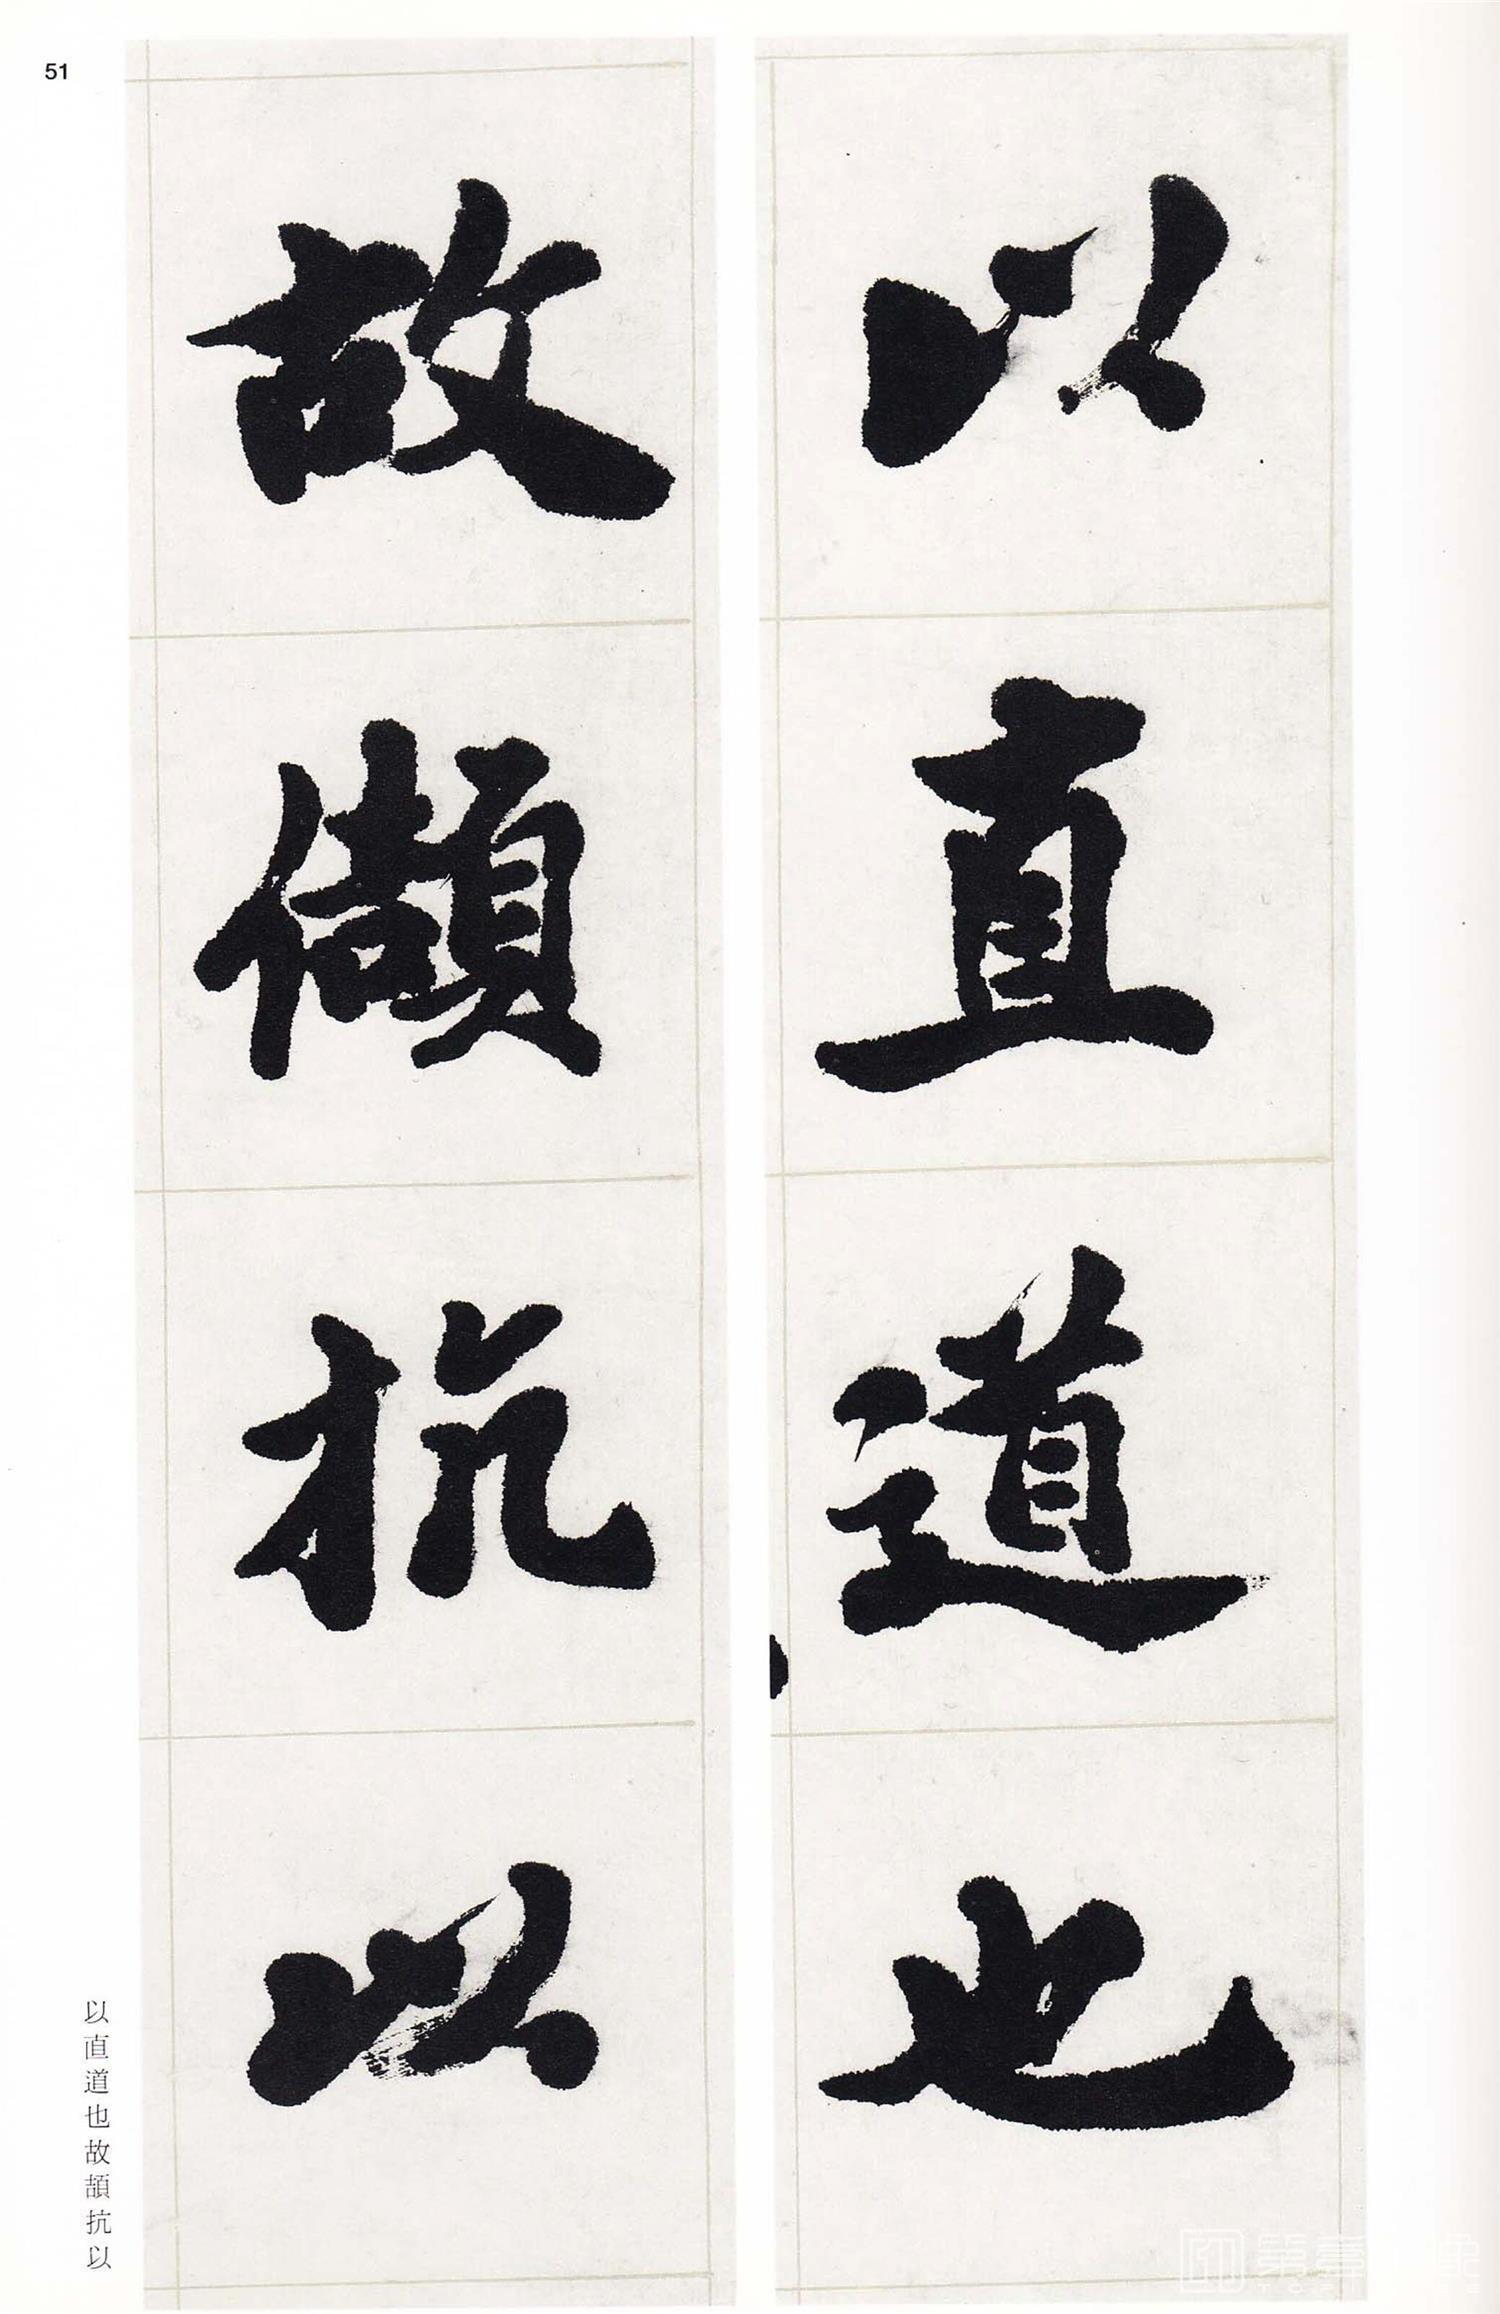 51
以直道也
故頡抗以
以直道也故頡抗以